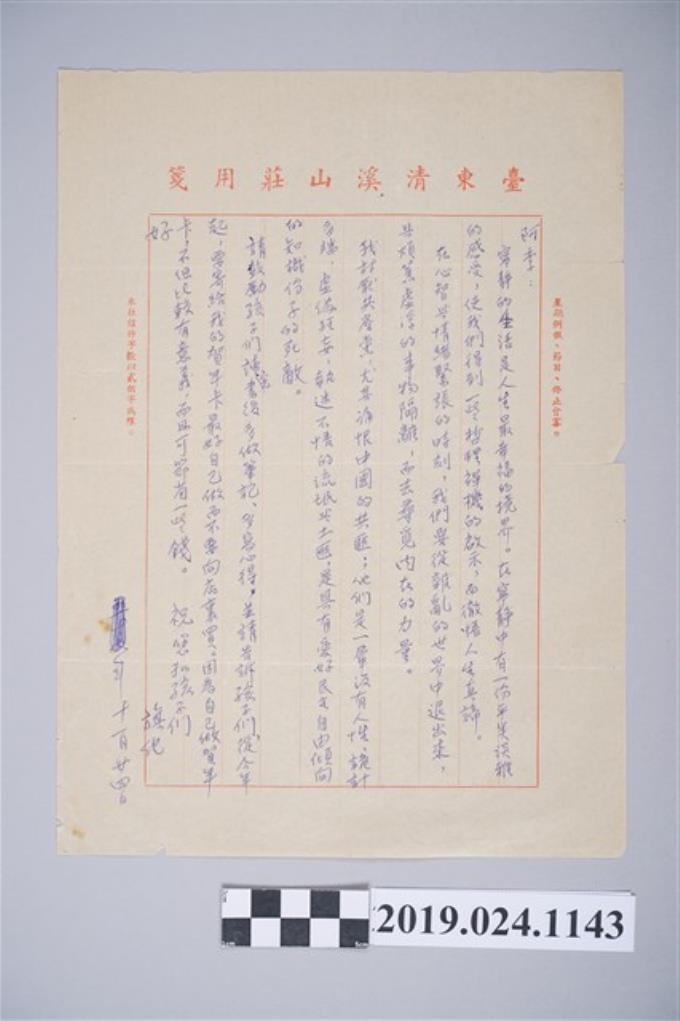 臺東清溪山莊用箋
星期例假、節日、停止會客。
阿季：
寧靜的生活是人生最幸福的境界。在寧靜中有一份平実淡雅
的感受，使我們得到一些哲理禪機的啟示，而徹悟人生真諦。
在心智與情緒緊張的時刻，我們要從雜亂的世界中退出來，
與煩囂虛浮的事物隔離，而去尋覓內在的力量。
我討厭共產黨，尤其痛恨中國的共匪；他們是一羣沒有人性、詭計
多端，虛偽狂妄，執迷不悟的流氓與土匪，是具有愛好民主自由傾向
的知識份子的死敵。
請鼓勵孩子們讀完書後多做筆記、多寫心得。並請告訴孩子們，從今年
起，要寄給我的賀年卡最好自己做而不要向店裏買。因為自己做賀年
卡，不但比較有意義，而且可節省一些錢。 祝您和孩子們
好
旗化
年 十一月廿四日
本社信件字數以貳佰字為限。
2019.024.1143